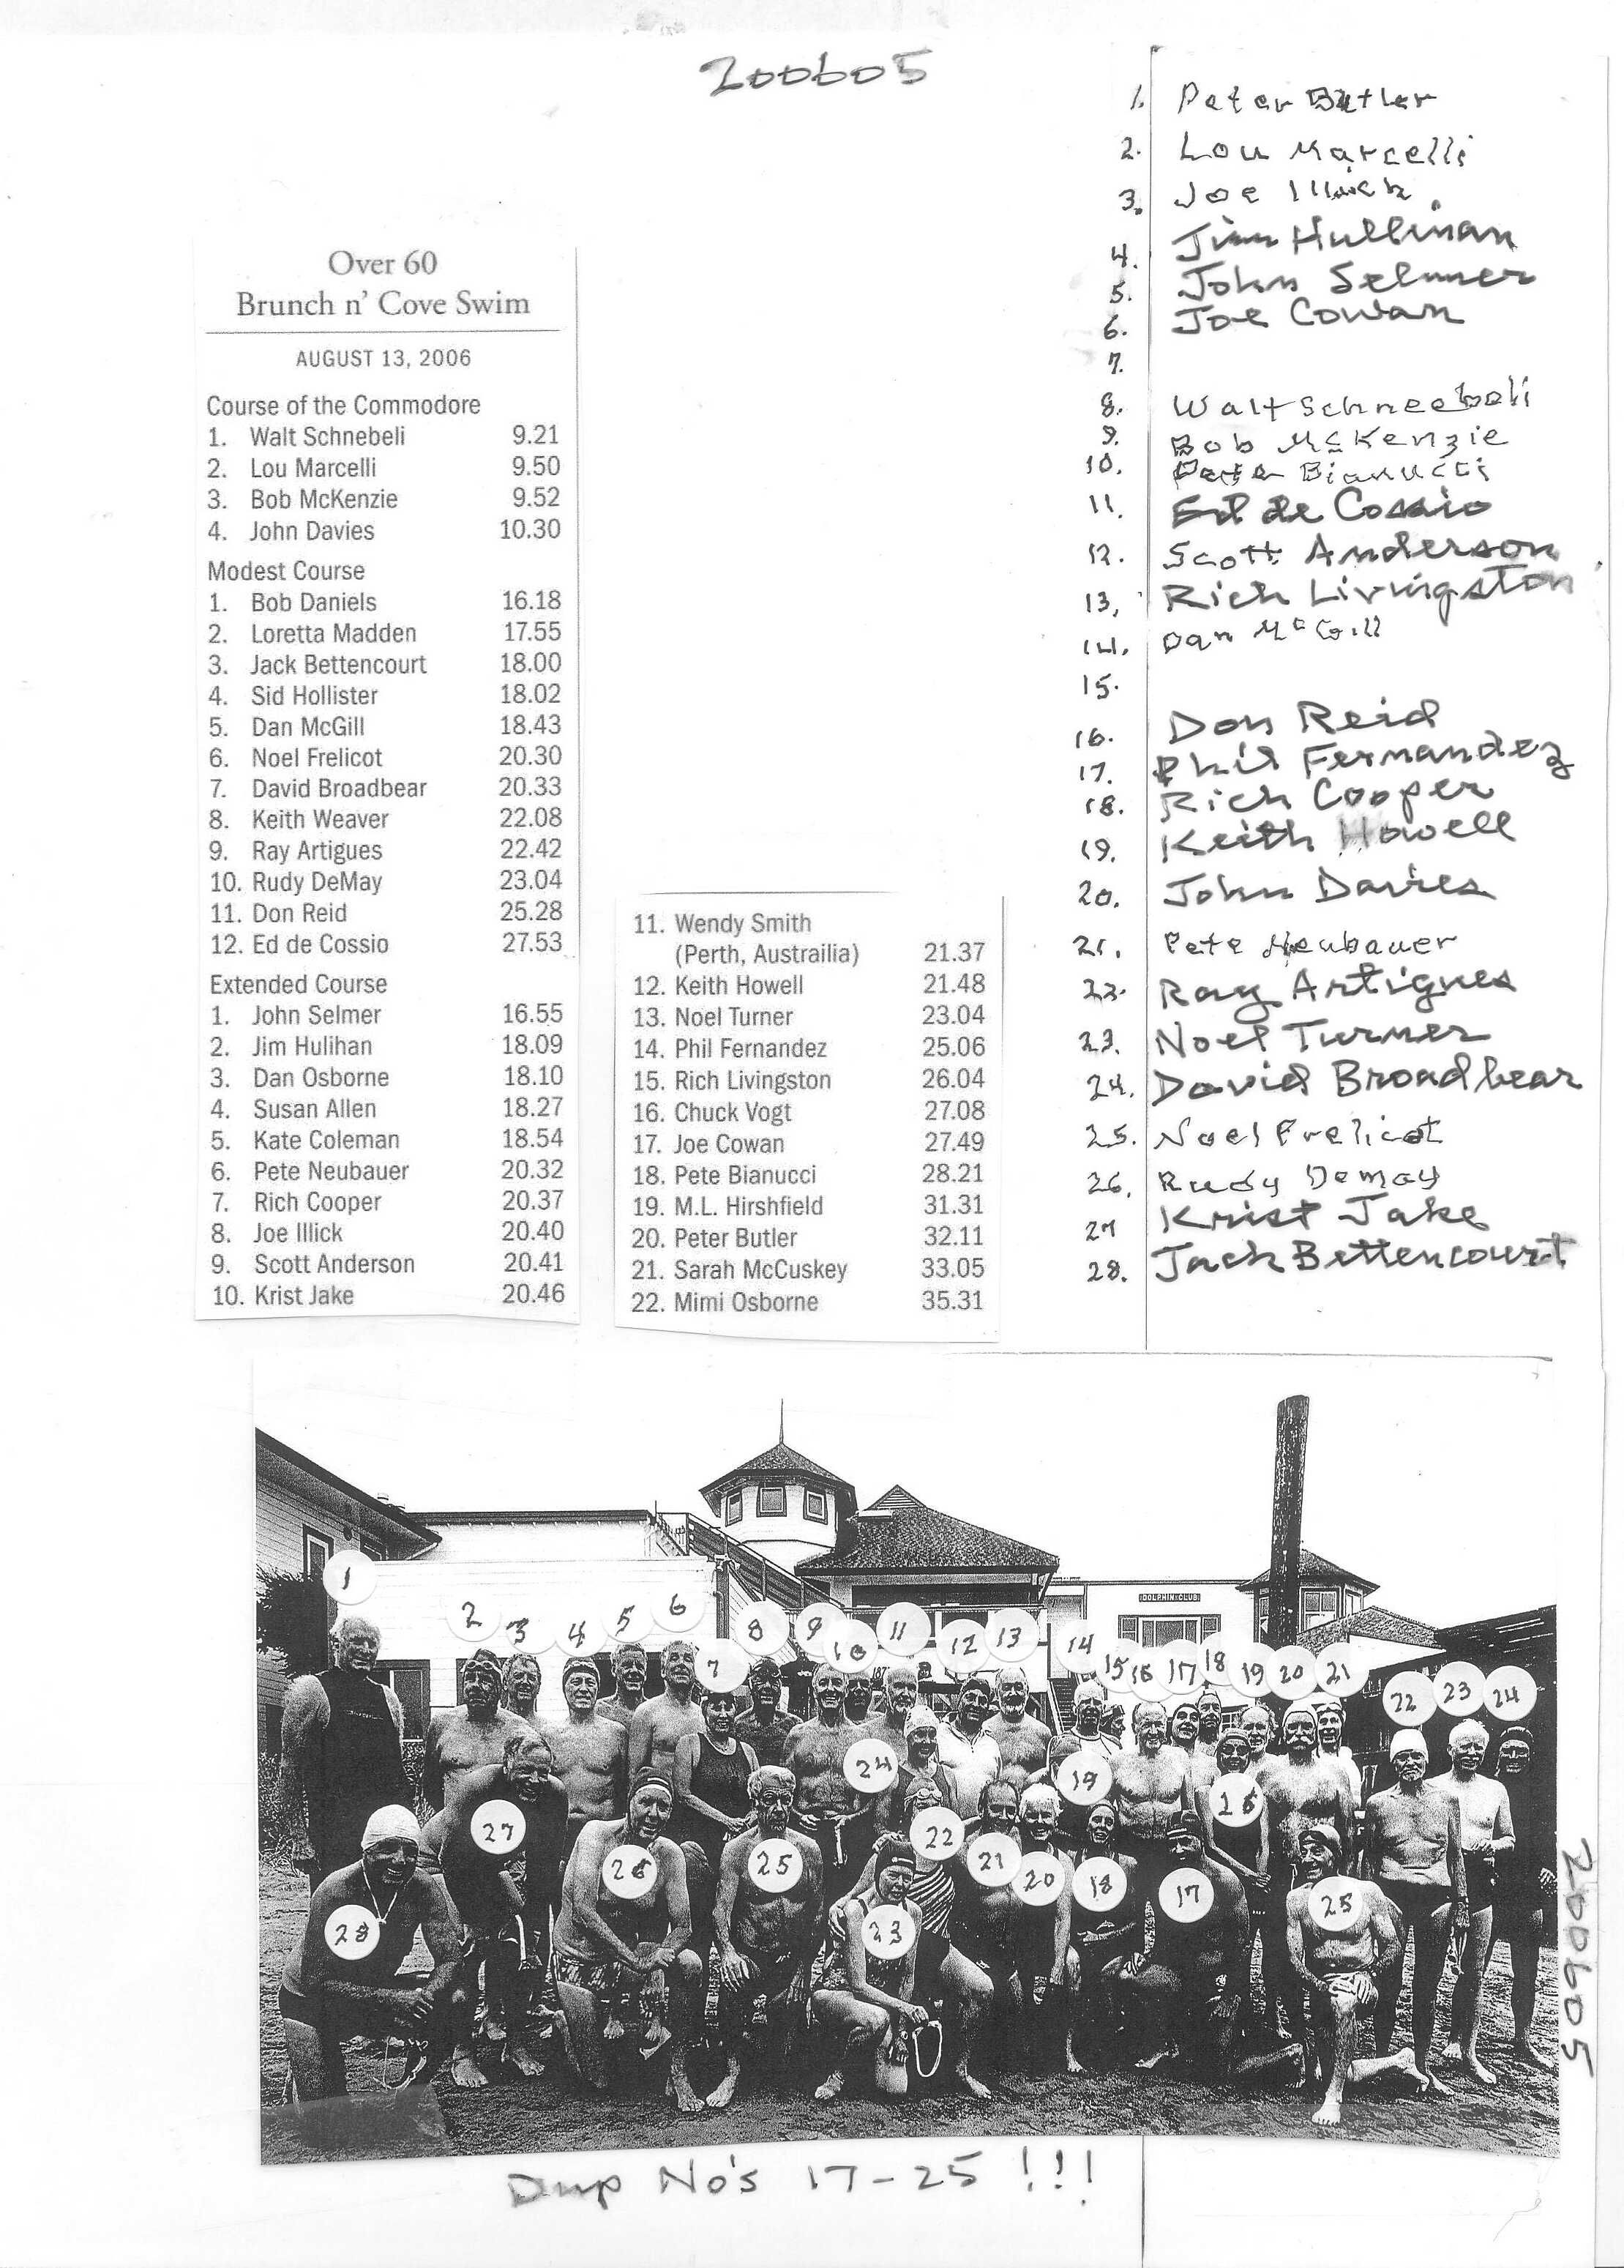 200605
Over 60
Brunch n' Cove Swim
AUGUST 13, 2006
Course of the Commodore
1. Walt Schnebeli 9.21
2. Lou Marcelli 9.50
3. Bob McKenzie 9.52
4. John Davies 10.30
Modest Course
1. Bob Daniels 16.18
2. Loretta Madden 17.55
3. Jack Bettencourt 18.00
4. Sid Hollister 18.02
5. Dan McGill 18.43
6. Noel Frelicot 20.30
7. David Broadbear 20.33
8. Keith Weaver 22.08
9. Ray Artigues 22.42
10. Rudy DeMay 23.04
11. Don Reid 25.28
12. Ed de Cossio 27.53
Extended Course
1. John Selmer 16.55
2. Jim Hulihan 18.09
3. Dan Osborne 18.10
4. Susan Allen 18.27
5. Kate Coleman 18.54
6. Pete Neubauer 20.32
7. Rich Cooper 20.37
8. Joe Illick 20.40
9. Scott Anderson 20.41
10. Krist Jake 20.46
11. Wendy Smith
(Perth, Austrailia) 21.37
12. Keith Howell 21.48
13. Noel Turner 23.04
14. Phil Fernandez 25.06
15. Rich Livingston 26.04
16. Chuck Vogt 27.08
17. Joe Cowan 27.49
18. Pete Bianucci 28.21
19. M.L. Hirshfield 31.31
20. Peter Butler 32.11
21. Sarah McCuskey 33.05
22. Mimi Osborne 35.31
1. Peter Butler
2. Lou Marcelli
3. Joe Illick
4. Jim Hullinan
5. John Selmer
6. Joe Cowan
7.
8. Walt Schneeboli
9. Bob McKenzie
10. Pete Bianucci
11. Ed de Cossio
12. Scott Anderson
13. Rich Livingston
14. Dan McGill
15.
16. Don Reid
17. Phil Fernandez
18. Rich Cooper
19. Keith Howell
20. John Davies
21. Pete Neubauer
22. Ray Artigues
23. Noel Turner
24. David Broadbear
25. Noel Frelicot
26. Rudy Demay
27 Krist Jake
28. Jack Bettencourt
DOLPHIN CLUB
1
2 3 4 5 6
7 8 9 10 11 12 13
14 15 16 17 18 19 20 21
22 23 24
24 19 26
27 26 25 22 21 20 18 17 25
28 23
200605
Dup No's 17-25 !!!